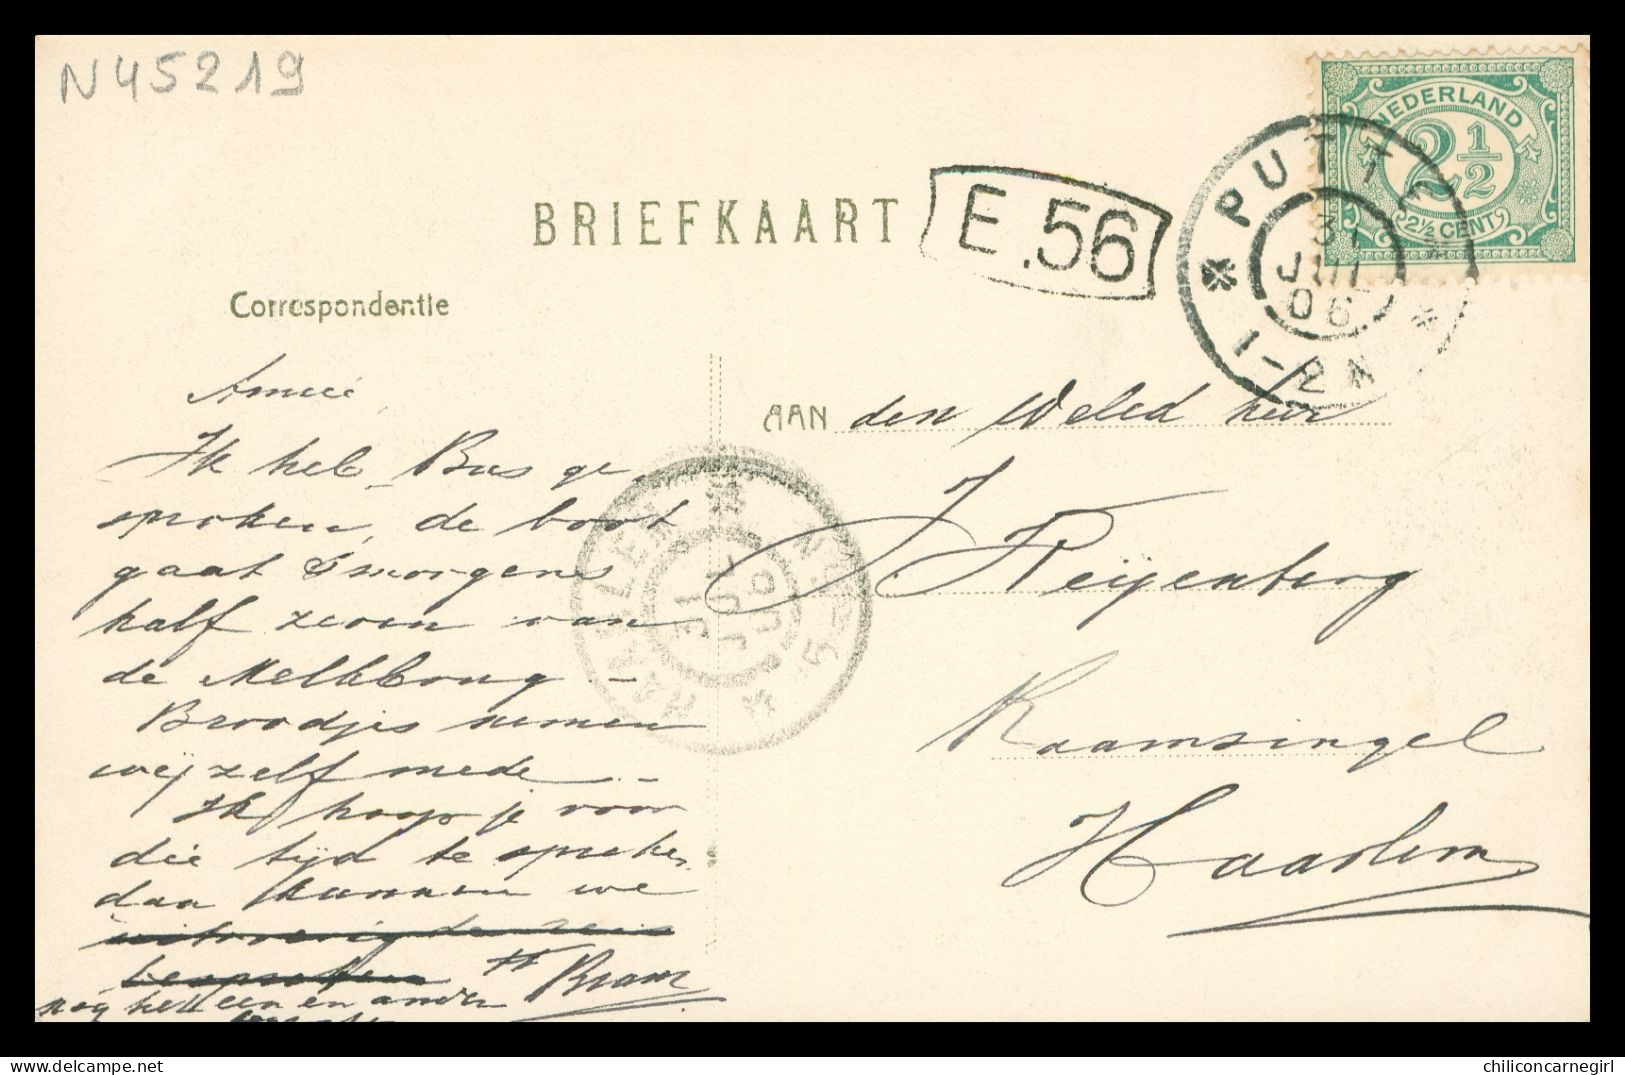 N45219
NEDERLAND
2 1/2
2½ CENT
PUTTE
31
JUL
06
1-2N
E.56
BRIEFKAART
Correspondentie
Amice,
Ik heb Bus ge
sproken, de boot
gaat 's morgens
half zeven van
de Melkbrug. -
Broodjes nemen
wij zelf mede. -
Ik hoop je voor
die tijd te spreken
dan kunnen we
uitvoerig de reis
bespreken
tt Bram
nog het een en ander
AAN den Weled heer
J Reijenberg
Raamsingel
Haarlem
HAARLEM
31 JUL 06
5-
chiliconcarnegirl | www.delcampe.net